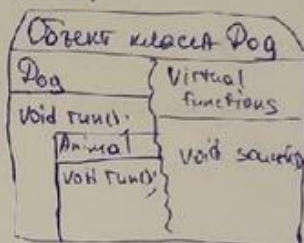 Объект класса Dog
Dog
Virtual
functions
void run();
Animal
void
void run();